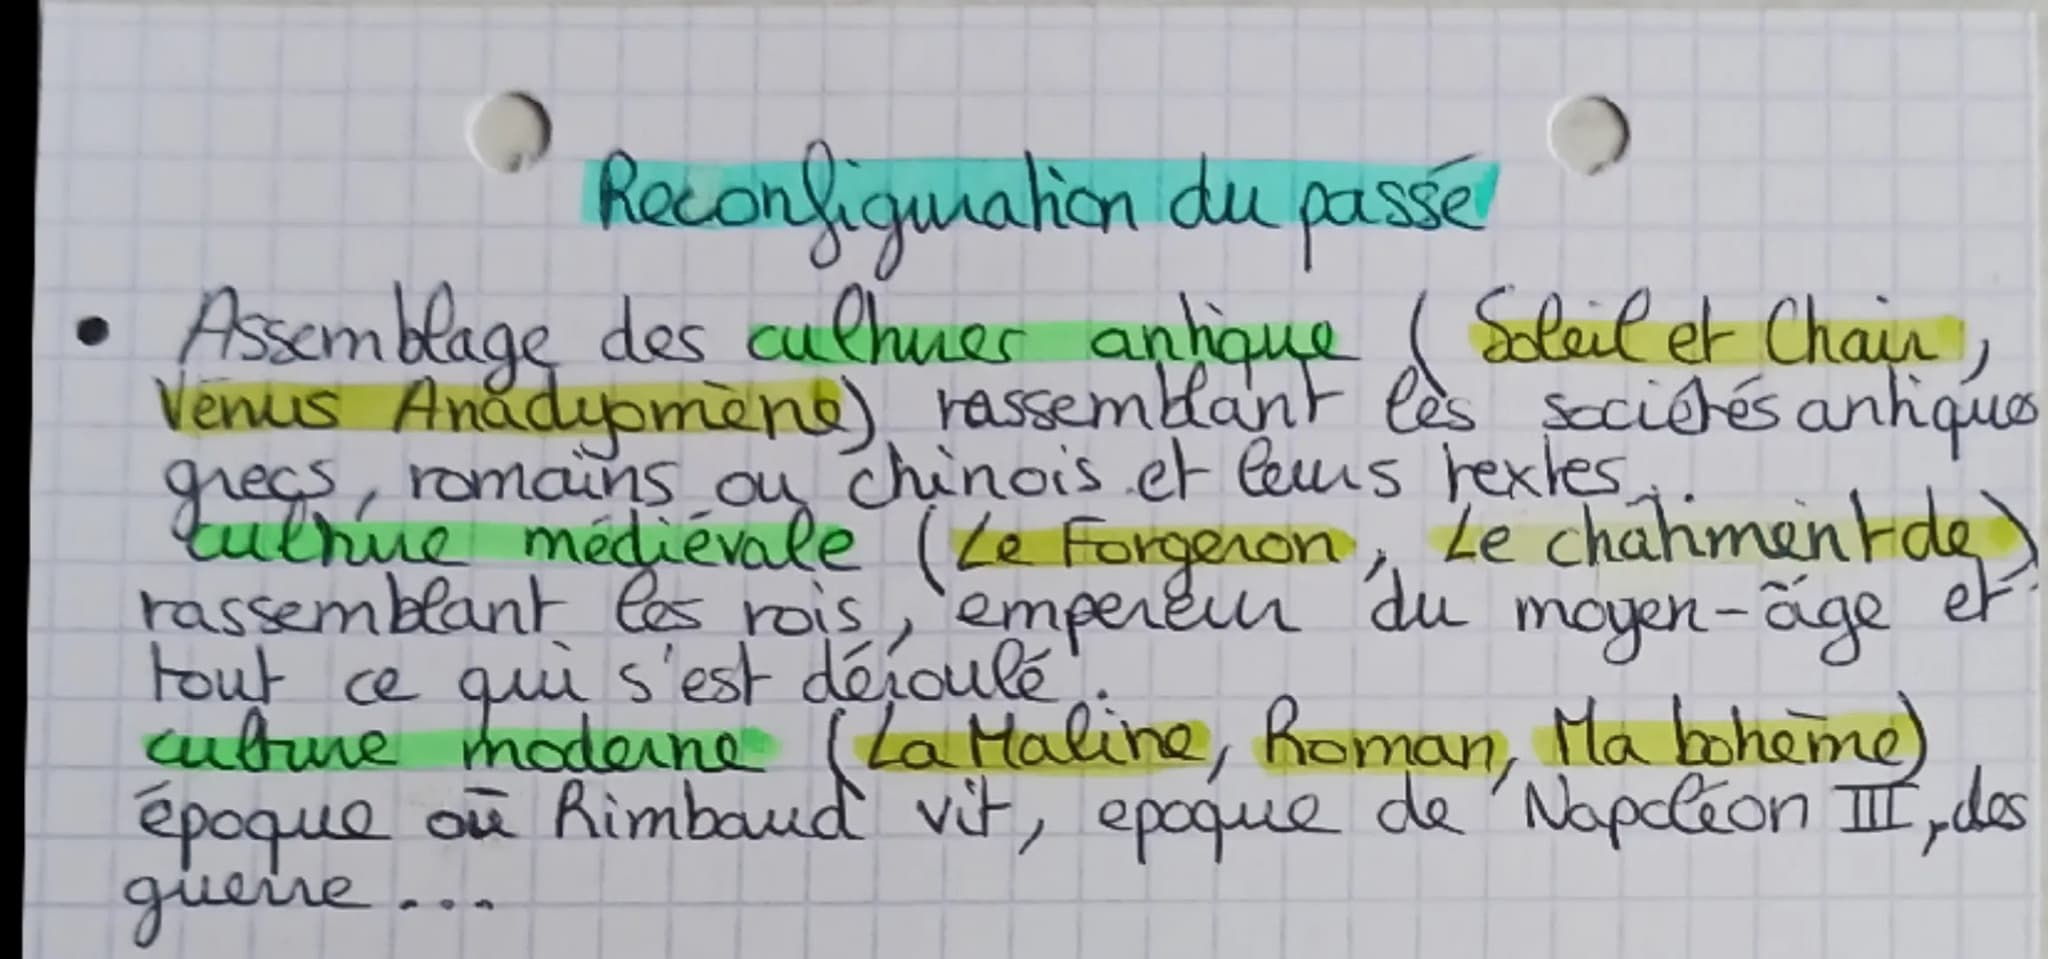 Reconfiguration du passé
• Assemblage des cultures antique (Soleil et Chair,
Vénus Anadyomène) rassemblant les sociétés antiques
grecs, romains ou chinois et leurs textes.
culture médiévale (Le Forgeron, Le châtiment de)
rassemblant les rois, empereur du moyen-âge et
tout ce qui s'est déroulé.
culture moderne (La Maline, Roman, Ma bohème)
époque où Rimbaud vit, epoque de Napoléon III, des
guerre...